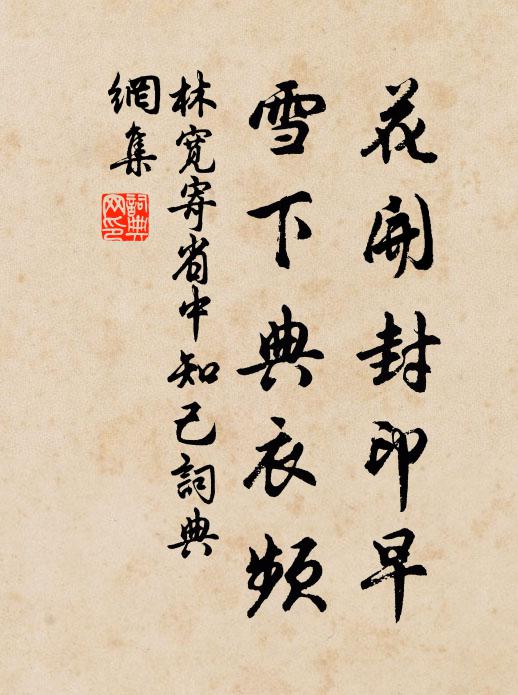 花開封印早
雪下典衣頻
林寬寄省中知己詞典
網集
詞典
网印